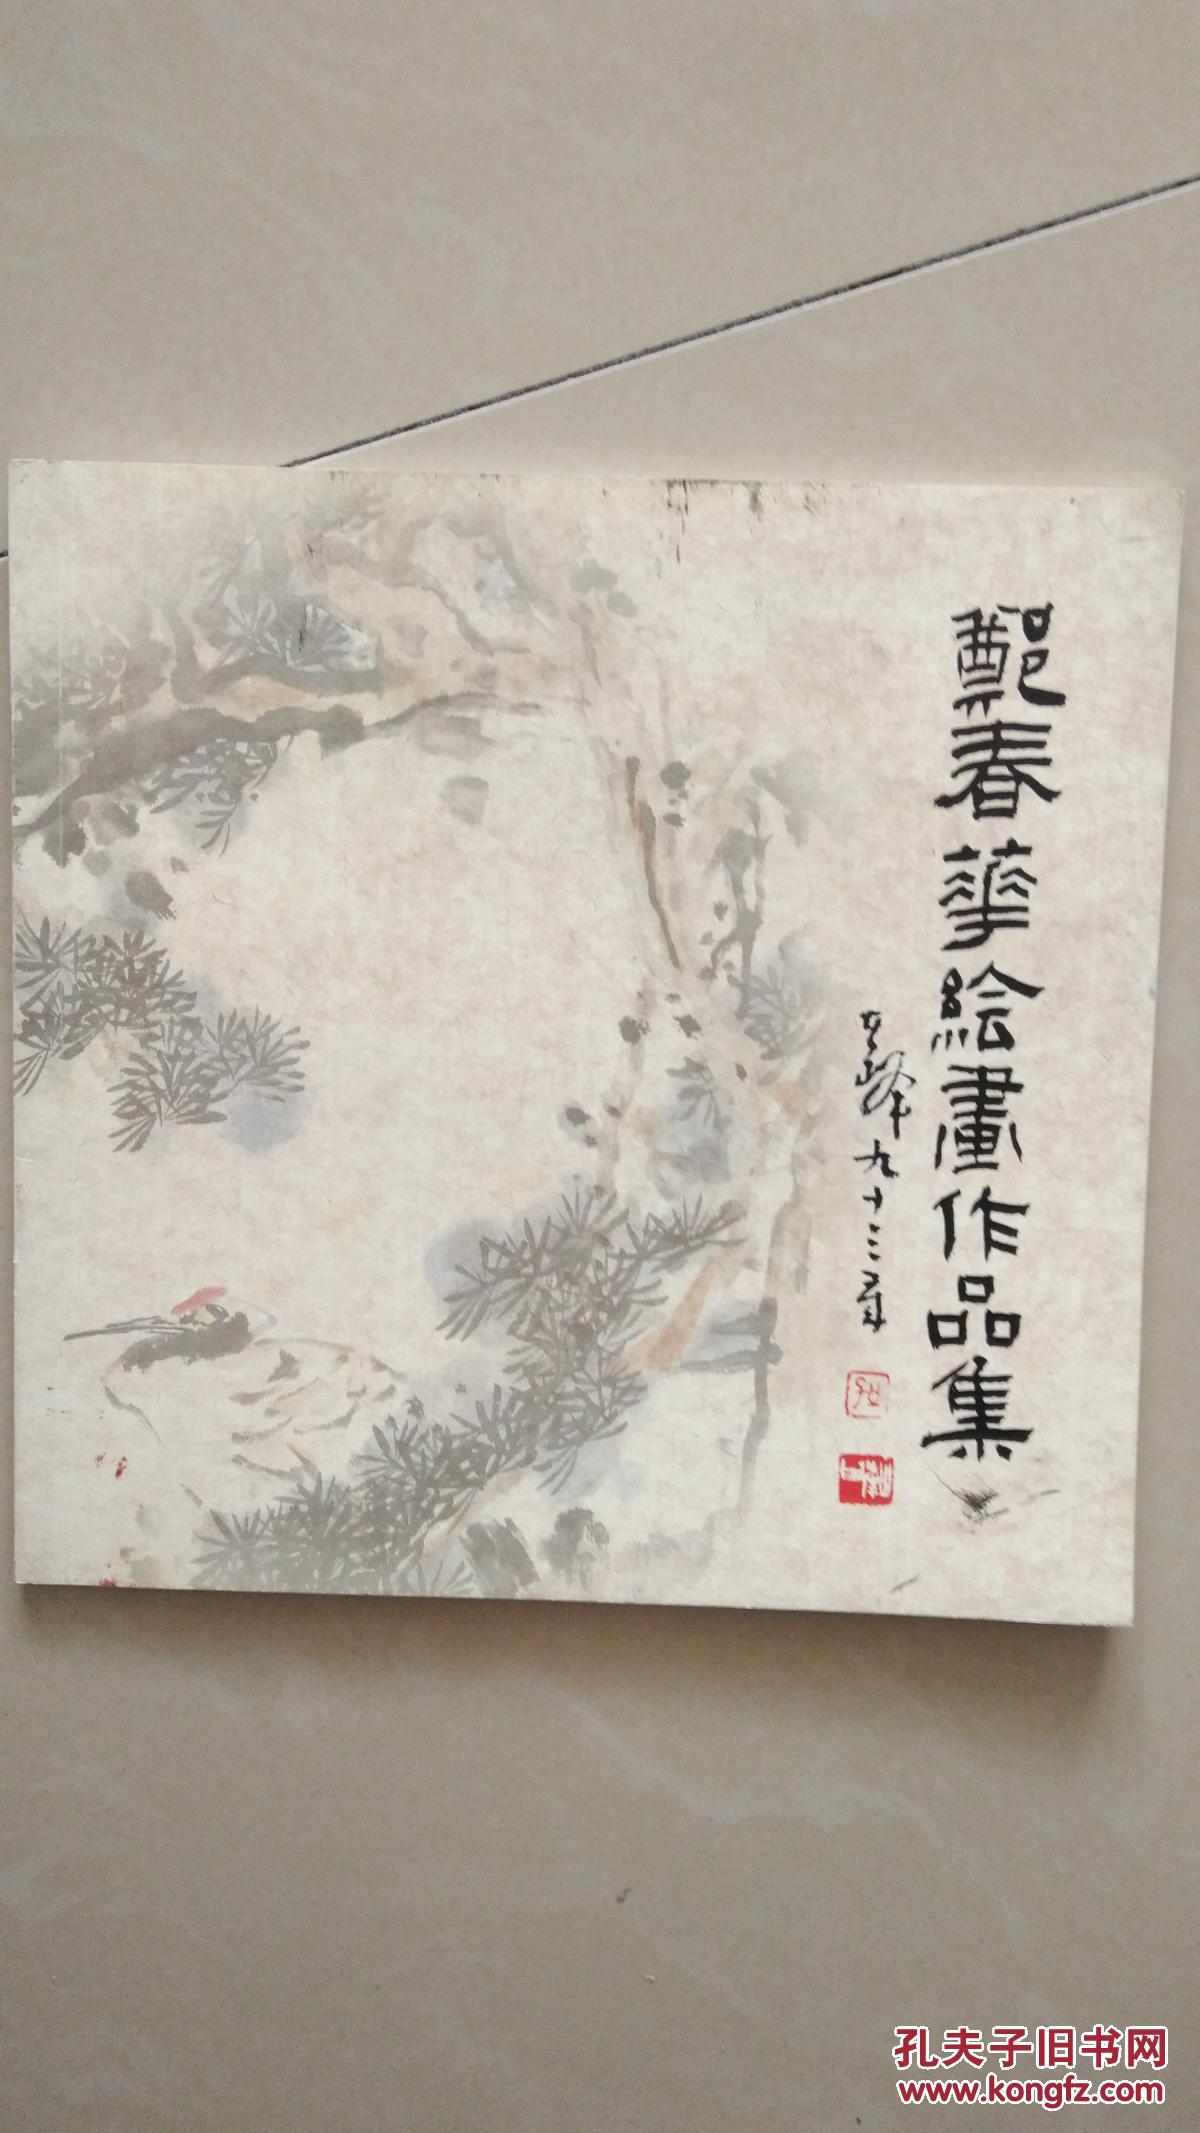 鄭春華絵畫作品集
其峰九十三
孔夫子旧书网
www.kongfz.com